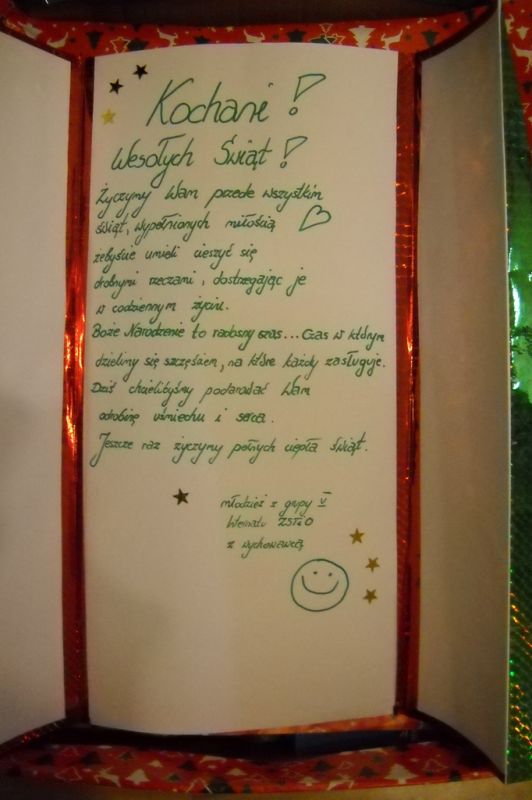 Kochani!
Wesołych Świąt!
Życzymy Wam przede wszystkim
świąt, wypełnionych miłością
żebyście umieli cieszyć się
drobnymi rzeczami, dostrzegając je
w codziennym życiu.
Boże Narodzenie to radosny czas... Czas w którym
dzielimy się szczęściem, na które każdy zasługuje.
Dziś chcielibyśmy podarować Wam
odrobinę uśmiechu i serca.
Jeszcze raz życzymy pełnych ciepła świąt.
młodzież z grupy V
Internatu ZSTiO
z wychowawcą